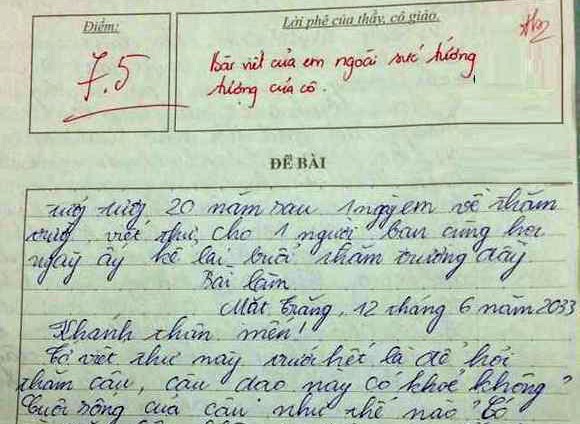 Điểm:
Lời phê của thầy, cô giáo.
7.5
Bài viết của em ngoài sức tưởng
tượng của cô.
ĐỀ BÀI
20 năm sau 1 ngày em về thăm
trường, viết thư cho 1 người bạn cùng học
ngày ấy kể lại buổi thăm trường đầy
Bài làm
Mặt Trăng, 12 tháng 6 năm 2033
Khanh thân mến!
Tớ viết thư này trước hết là để hỏi
thăm cậu, cậu dạo này có khoẻ không?
Cuộc sống của cậu như thế nào? Có